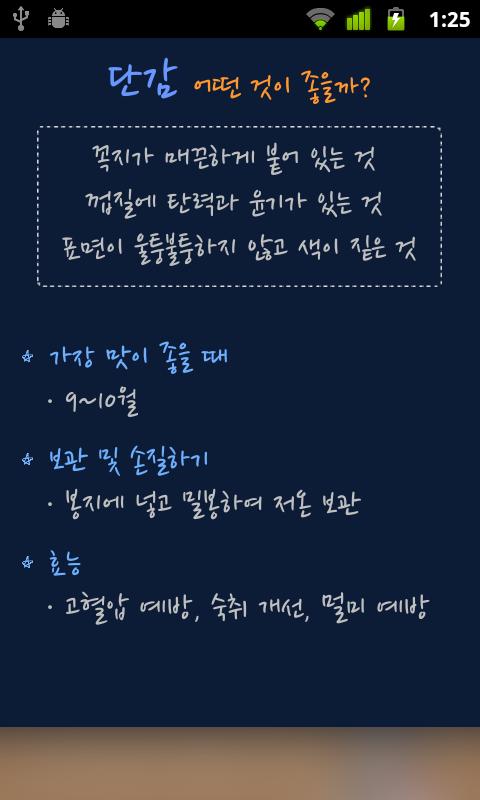 1:25
단감 어떤 것이 좋을까?
꼭지가 매끈하게 붙어 있는 것
껍질에 탄력과 윤기가 있는 것
표면이 울퉁불퉁하지 않고 색이 짙은 것
☆ 가장 맛이 좋을 때
· 9~10월
☆ 보관 및 손질하기
· 봉지에 넣고 밀봉하여 저온 보관
☆ 효능
· 고혈압 예방, 숙취 개선, 멀미 예방